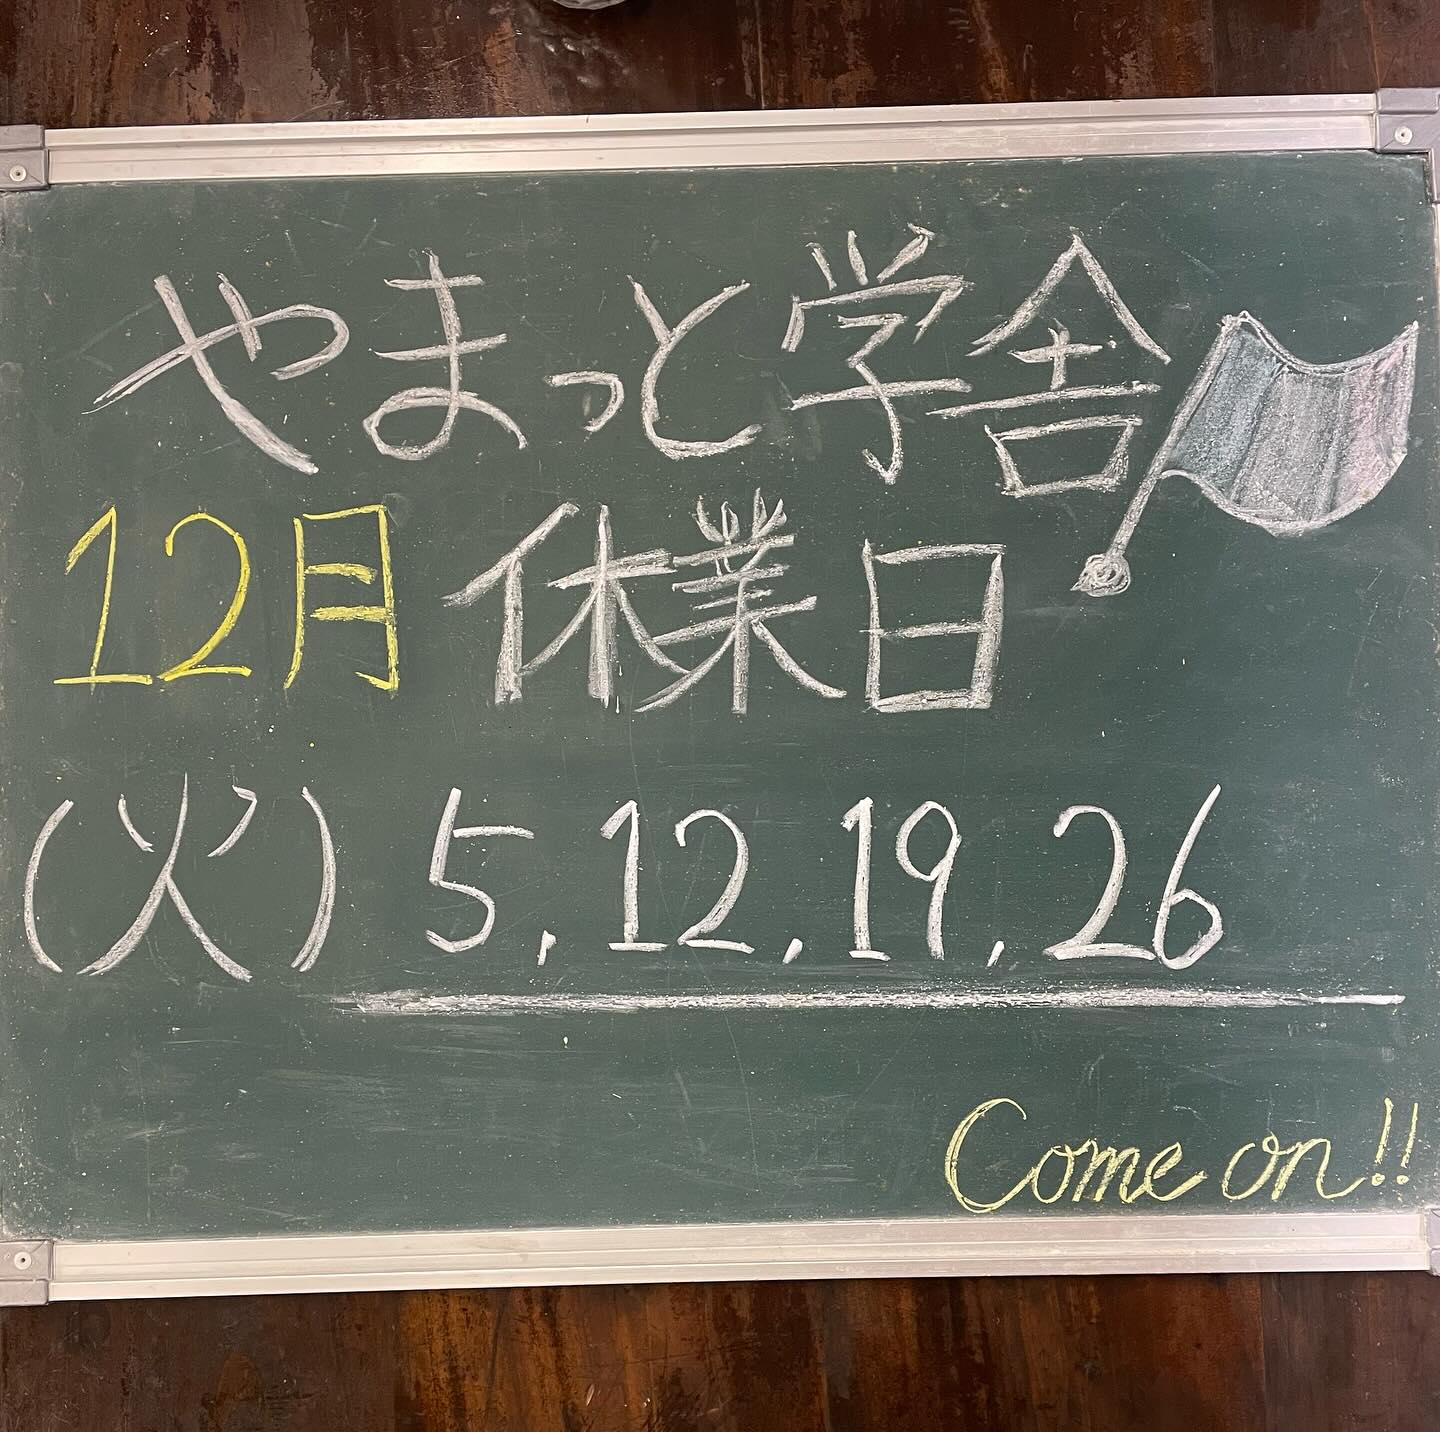 やまっと学舎
12月 休業日
(火) 5, 12, 19, 26
Come on!!